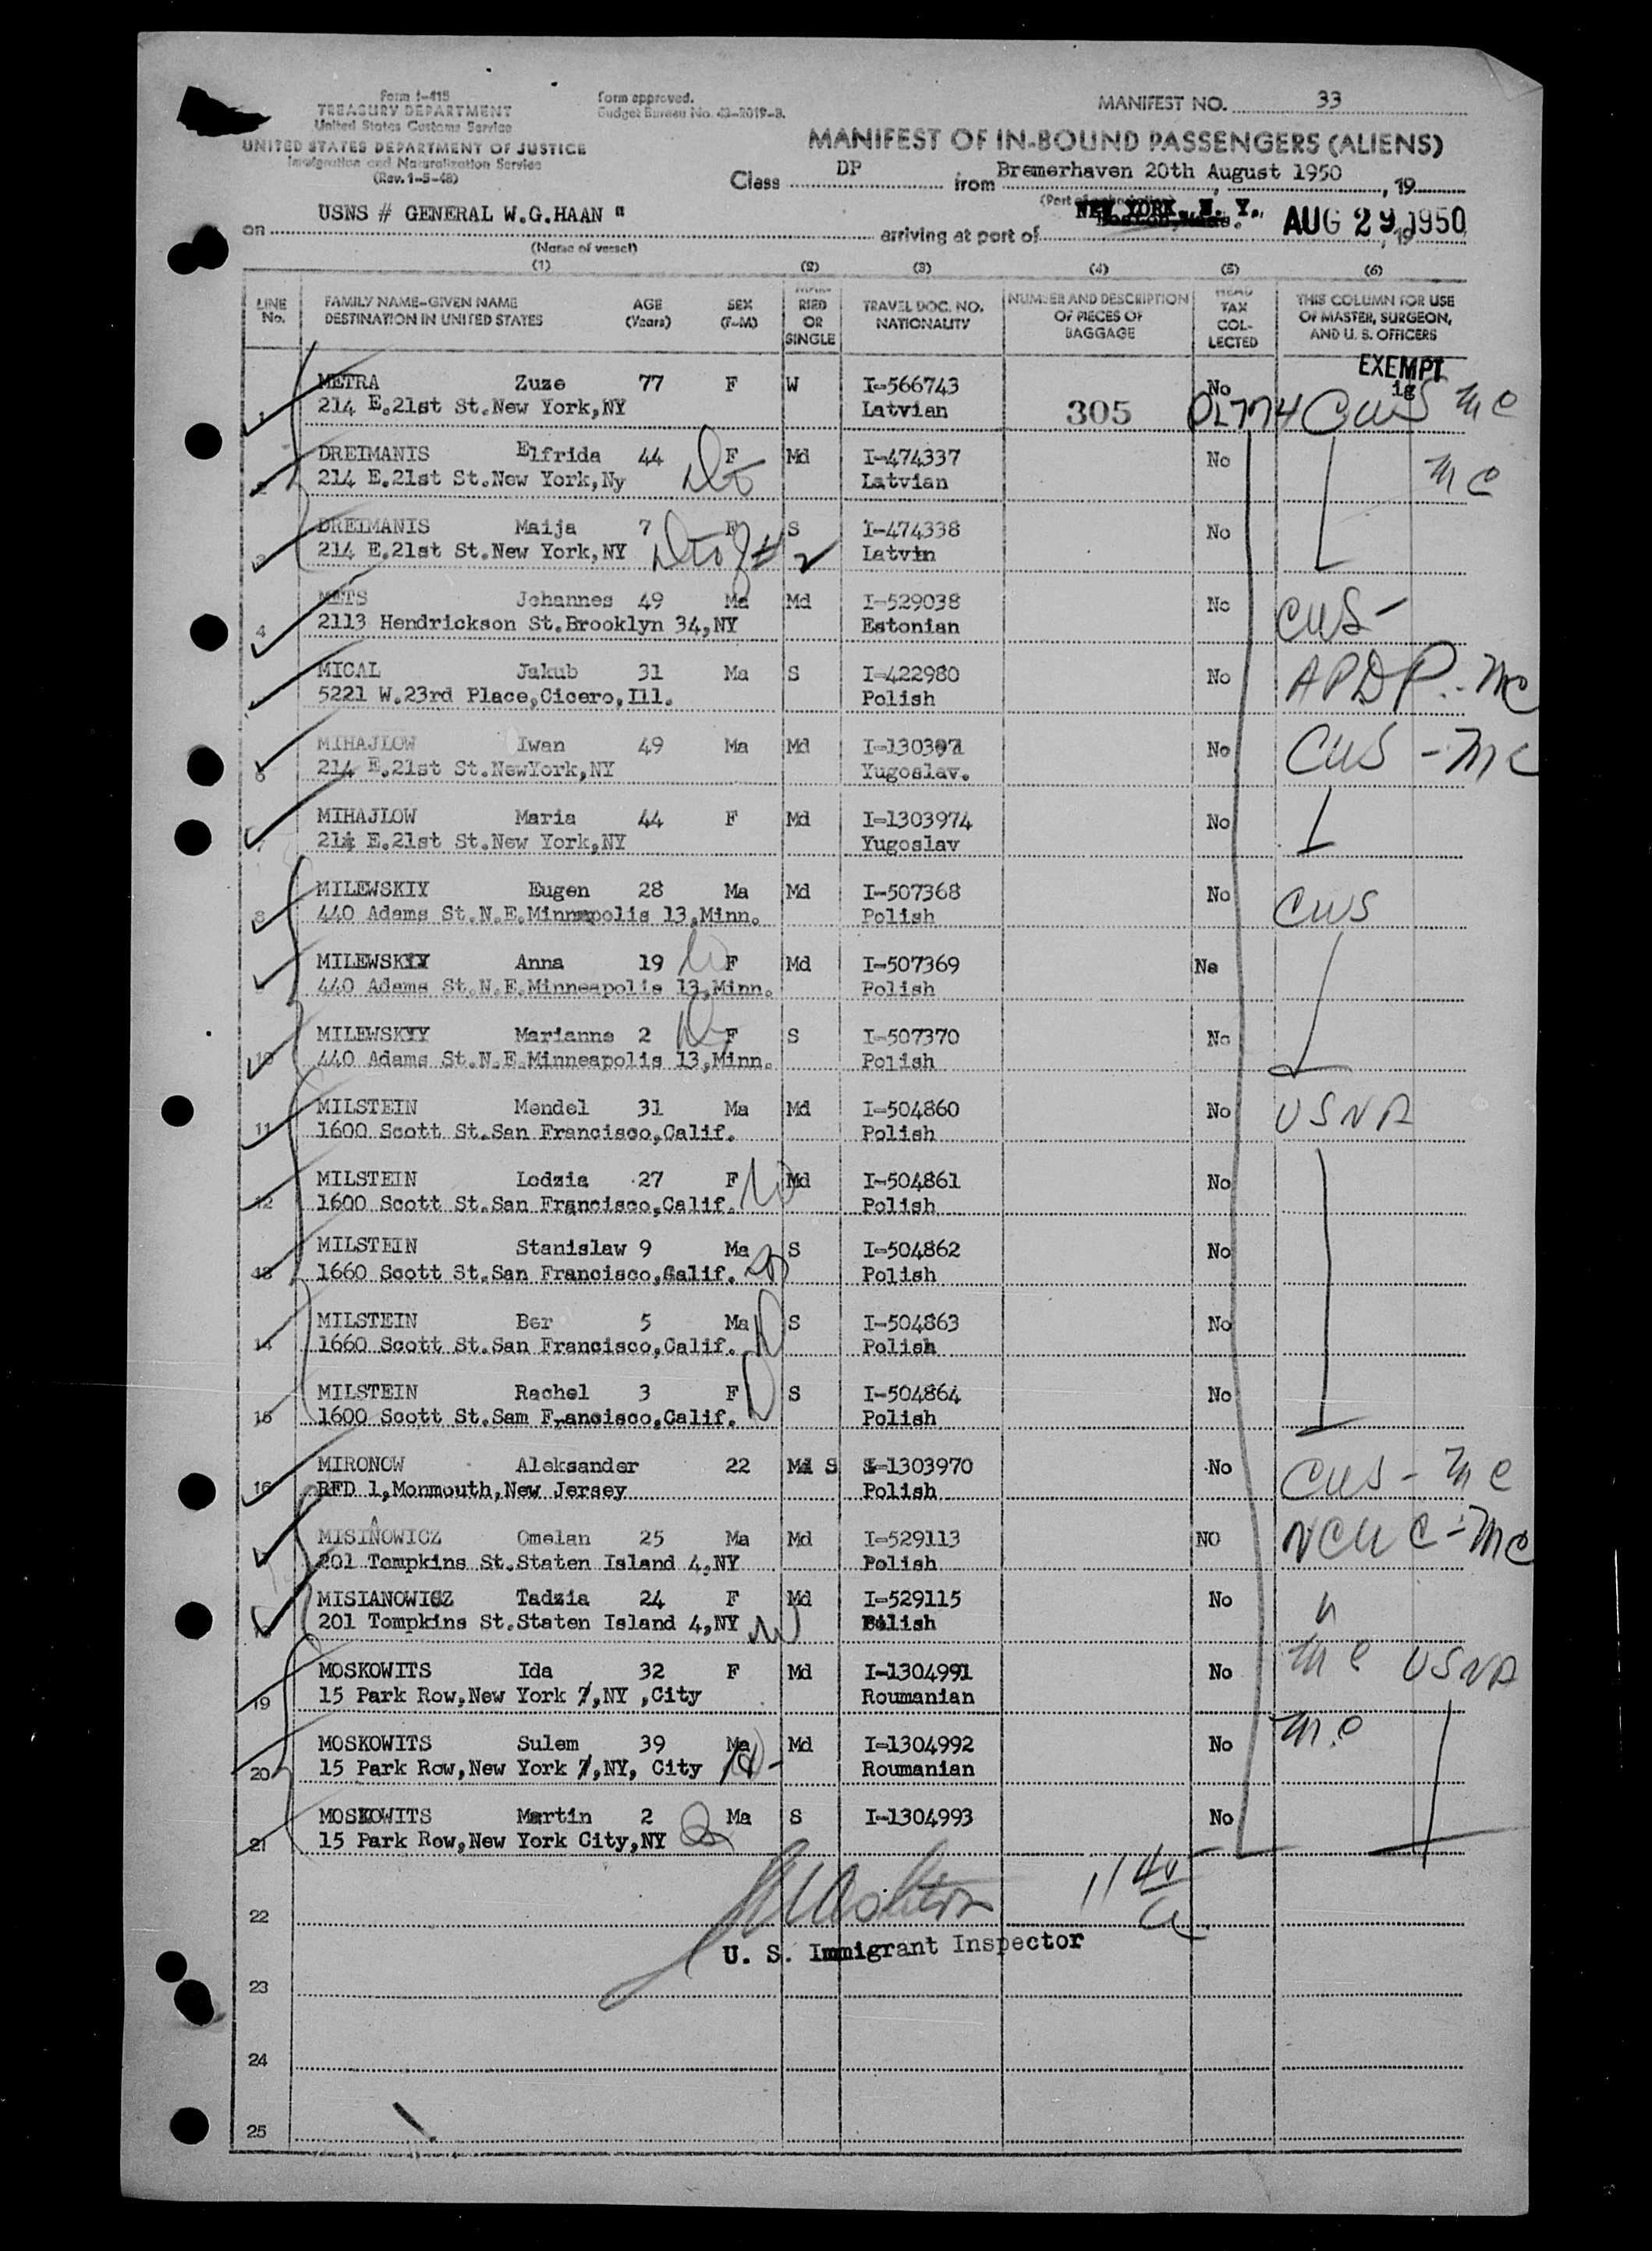 Form I-415
TREASURY DEPARTMENT
United States Customs Service
UNITED STATES DEPARTMENT OF JUSTICE
Immigration and Naturalization Service
(Rev. 1-5-48)
Form approved.
Budget Bureau No. 43-2019-3.
MANIFEST NO. 33
MANIFEST OF IN-BOUND PASSENGERS (ALIENS)
Class DP from Bremerhaven 20th August 1950, 19
on USNS # GENERAL W.G.HAAN " arriving at port of NEW YORK, N. Y., AUG 29 1950
(Name of vessel)
(1) (2) (3) (4) (5) (6)
LINE No. FAMILY NAME-GIVEN NAME DESTINATION IN UNITED STATES AGE (Years) SEX (F-M) RIED OR SINGLE TRAVEL DOC. NO. NATIONALITY NUMBER AND DESCRIPTION OF PIECES OF BAGGAGE HEAD TAX COL-LECTED THIS COLUMN FOR USE OF MASTER, SURGEON, AND U. S. OFFICERS
EXEMPT
1 METRA Zuze 77 F W I-566743 No
214 E.21st St.New York,NY Latvian 305 CWS MC
2 DREIMANIS Elfrida 44 F Md I-474337 No MC
214 E.21st St.New York,Ny Latvian
3 DREIMANIS Maija 7 F S I-474338 No
214 E.21st St.New York,NY Latvin
4 METS Johannes 49 Ma Md I-529038 No CWS-
2113 Hendrickson St.Brooklyn 34,NY Estonian
MICAL Jakub 31 Ma S I-422980 No APDP.-MC
5221 W.23rd Place,Cicero,Ill. Polish
6 MIHAJLOW Iwan 49 Ma Md No CWS-MC
214 E.21st St.NewYork,NY Yugoslav.
7 MIHAJLOW Maria 44 F Md I-1303974 No
214 E.21st St.New York,NY Yugoslav
8 MILEWSKIY Eugen 28 Ma Md I-507368 No CWS
440 Adams St.N.E.Minneapolis 13,Minn. Polish
MILEWSKIY Anna 19 F Md I-507369 No
440 Adams St.N.E.Minneapolis 13,Minn. Polish
10 MILEWSKYY Marianne 2 F S I-507370 No
440 Adams St.N.E.Minneapolis 13,Minn. Polish
11 MILSTEIN Mendel 31 Ma Md I-504860 No USNA
1600 Scott St.San Francisco,Calif. Polish
12 MILSTEIN Lodzia 27 F Md I-504861 No
1600 Scott St.San Francisco,Calif. Polish
13 MILSTEIN Stanislaw 9 Ma S I-504862 No
1660 Scott St.San Francisco,Calif. Polish
14 MILSTEIN Ber 5 Ma S I-504863 No
1660 Scott St.San Francisco,Calif. Polish
15 MILSTEIN Rachel 3 F S I-504864 No
1600 Scott St.Sam Francisco,Calif. Polish
16 MIRONOW Aleksander 22 Md S I-1303970 No CWS-MC
RFD 1,Monmouth,New Jersey Polish
MISINOWICZ Omelan 25 Ma Md I-529113 NO NCWC-MC
201 Tompkins St.Staten Island 4,NY Polish
MISIANOWICZ Tadzia 24 F Md I-529115 No "
201 Tompkins St.Staten Island 4,NY Polish
19 MOSKOWITS Ida 32 F Md I-1304991 No MC USNA
15 Park Row,New York 7,NY ,City Roumanian
20 MOSKOWITS Sulem 39 Ma Md I-1304992 No MC
15 Park Row,New York 7,NY, City Roumanian
21 MOSKOWITS Martin 2 Ma S I-1304993 No
15 Park Row,New York City,NY
22
U. S. Immigrant Inspector
23
24
25